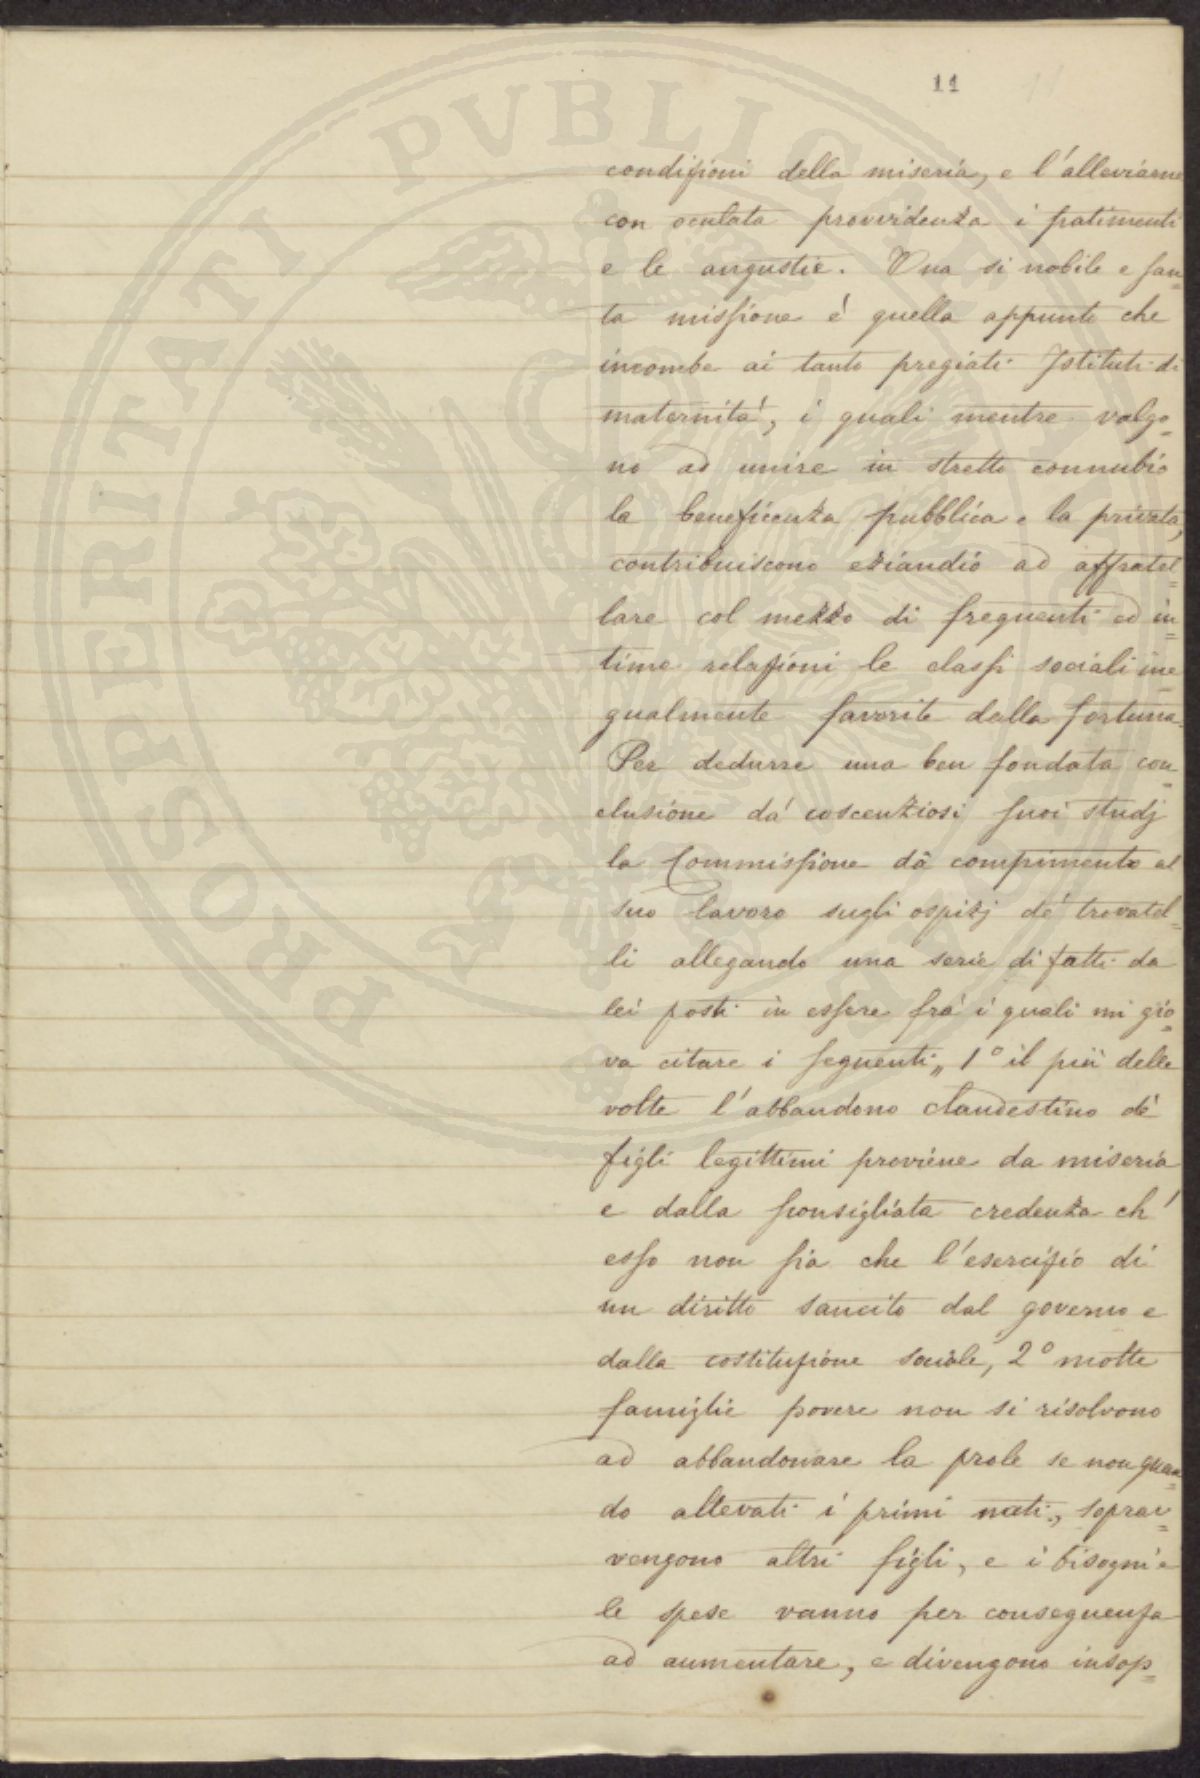 11
condizioni della miseria, e l'alleviarne
con oculata provvidenza i patimenti
e le angustie. Una si nobile e san=
ta missione è quella appunto che
incombe ai tanto pregiati Istituti di
maternità, i quali mentre valgo=
no ad unire in stretto connubio
la beneficenza pubblica e la privata,
contribuiscono eziandio ad affratel=
lare col mezzo di frequenti ed in=
time relazioni le classi sociali ine=
gualmente favorite dalla fortuna.
Per dedurre una ben fondata con=
clusione da' coscenziosi suoi studj
la Commissione dà compimento al
suo lavoro sugli ospizj de' trovatel=
li allegando una serie di fatti da
lei posti in essere frà i quali mi gio=
va citare i seguenti„ 1° il più delle
volte l'abbandono clandestino de'
figli legittimi proviene da miseria
e dalla sconsigliata credenza ch'
esso non sia che l'esercizio di
un diritto sancito dal governo e
dalla costituzione sociale, 2° molte
famiglie povere non si risolvono
ad abbandonare la prole se non quan=
do allevati i primi nati, soprav=
vengono altri figli, e i bisogni e
le spese vanno per conseguenza
ad aumentare, e divengono insop=
PROSPERITATI PVBLICAE